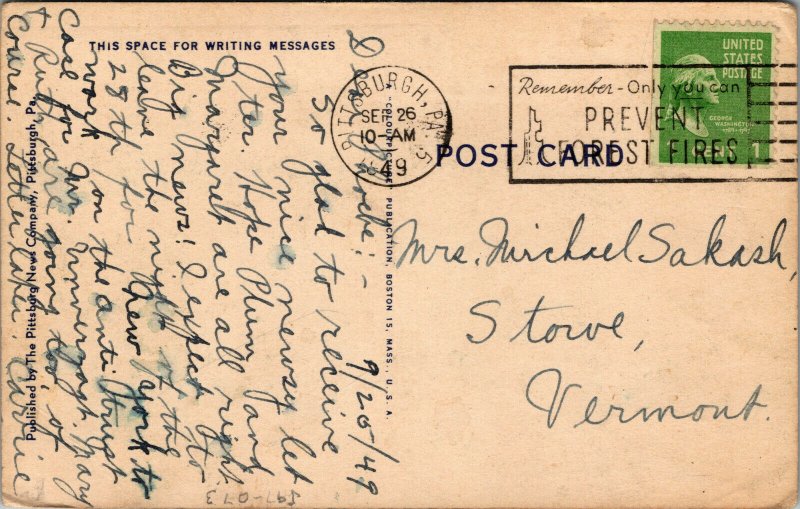 THIS SPACE FOR WRITING MESSAGES
9/26/49
Dear Phoebe:-
So glad to receive
your nice newsy let
ter. Hope Plum and
Margaret are all right.
Big news! I expect to
leave the night of the
28th for New York to
work on the anti Trust
Case for Mr.
Mary
& Ruth are going too, of
Course. Letter later. Carrie
Published by The Pittsburg News Company, Pittsburgh, Pa.
COLOURPICTURE PUBLICATION, BOSTON 15, MASS., U.S.A.
597-073
PITTSBURGH, PA.
SEP 26
10-AM
49
POST CARD
Remember-Only you can
PREVENT
FOREST FIRES
UNITED
STATES
POSTAGE
GEORGE
WASHINGTON
Mrs. Michael Sakash,
Stowe,
Vermont.